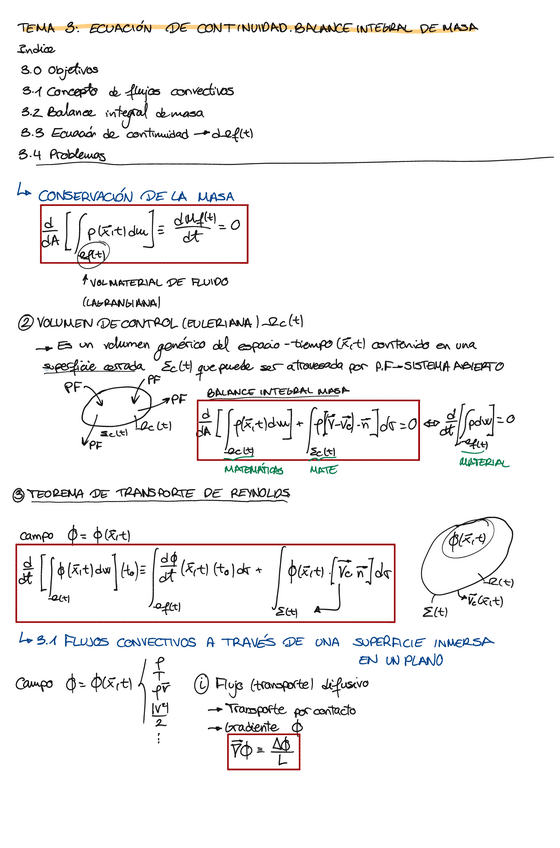 TEMA 3: ECUACIÓN DE CONTINUIDAD. BALANCE INTEGRAL DE MASA
Indice
3.0 Objetivos
3.1 Concepto de flujos convectivos
3.2 Balance integral de masa
3.3 Ecuación de continuidad → def(t)
3.4 Problemas
↳ CONSERVACIÓN DE LA MASA
d/dA [∫_{Ωf(t)} ρ(x̄,t)dω] ≡ dMf(t)/dt = 0
↑ VOL MATERIAL DE FLUIDO
(LAGRANGIANA)
② VOLUMEN DE CONTROL (EULERIANA) Ωc(t)
→ Es un volumen genérico del espacio-tiempo (x̄,t) contenido en una
superficie cerrada Σc(t) que puede ser atravesada por P.F → SISTEMA ABIERTO
PF PF PF PF Σc(t) Ωc(t)
BALANCE INTEGRAL MASA
d/dA [∫_{Ωc(t)} ρ(x̄,t)dω] + ∫_{Σc(t)} ρ[(v̄-v̄c)·n̄] dσ = 0 ⇔ d/dt [∫_{Ωf(t)} ρdω] = 0
MATEMÁTICAS MATE MATERIAL
③ TEOREMA DE TRANSPORTE DE REYNOLDS
campo ϕ = ϕ(x̄,t)
d/dt [∫_{Ω(t)} ϕ(x̄,t)dω] (t₀) ≡ ∫_{Ωf(t)} dϕ/dt (x̄,t) (t₀) dσ + ∫_{Σ(t)} ϕ(x̄,t) · [v̄c n̄] dσ
ϕ(x̄,t) Ω(t) v̄c(x̄,t) Σ(t)
↳ 3.1 FLUJOS CONVECTIVOS A TRAVÉS DE UNA SUPERFICIE INMERSA
EN UN PLANO
Campo ϕ = ϕ(x̄,t) { ρ T ρv̄ |v²|/2 ⋮
ⓘ Flujo (transporte) difusivo
→ Transporte por contacto
→ Gradiente ϕ
∇̄ϕ ≡ Δϕ/L